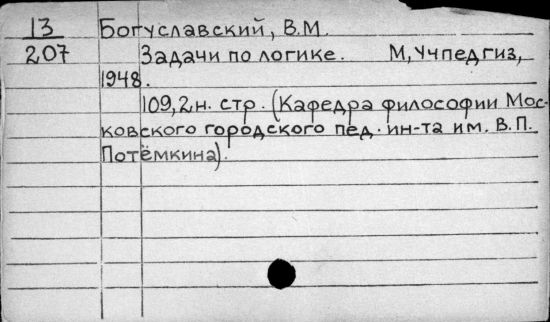 13 Богуславский, В.М.
207 Задачи по логике. М, Учпедгиз,
1948.
109,2,н. стр. (Кафедра философии Мос-
ковского городского пед. ин-та им. В.П.
Потёмкина).